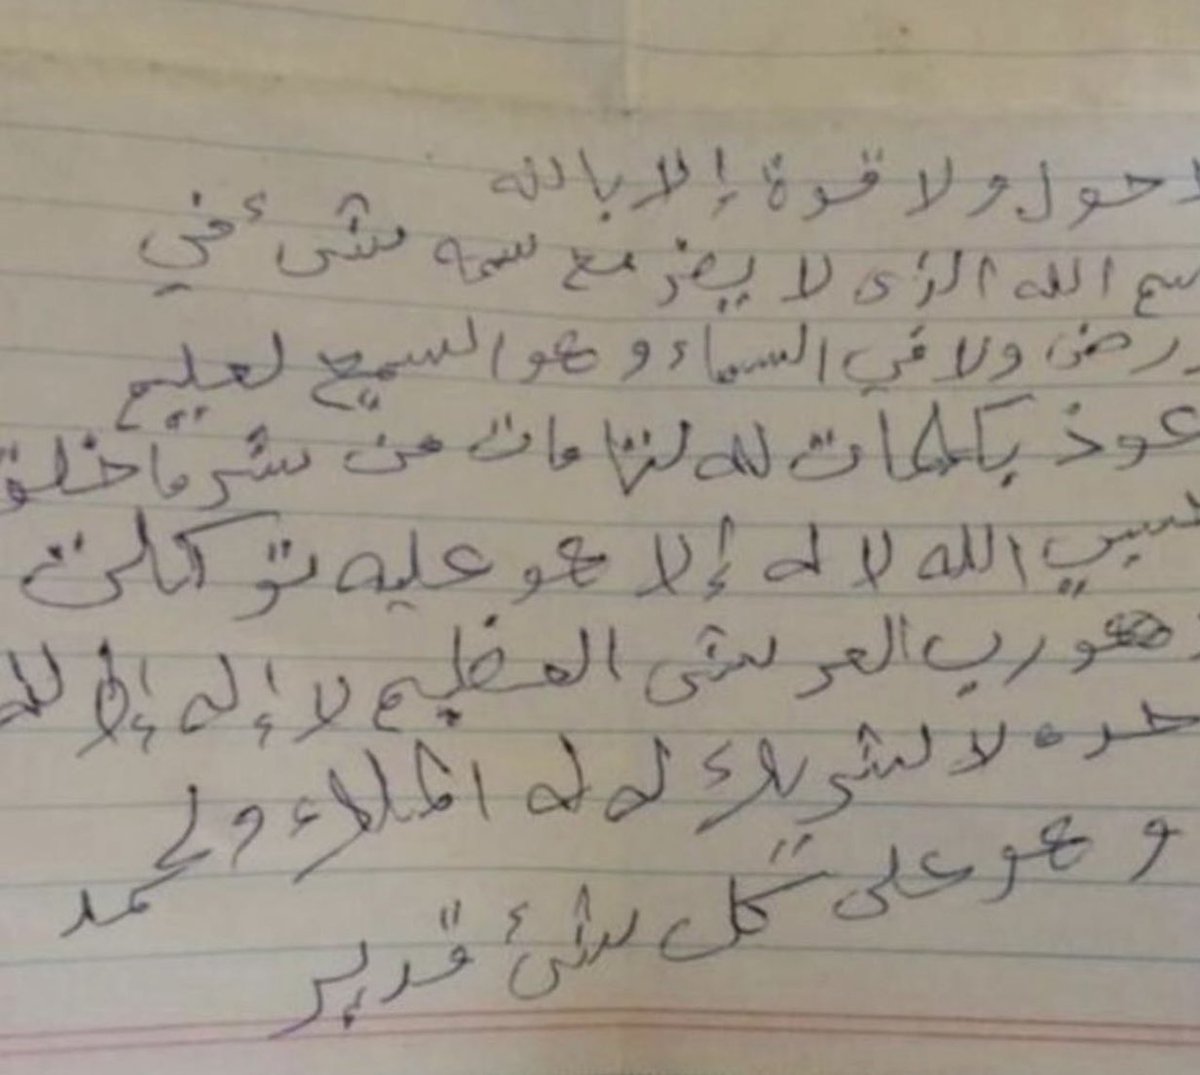 لا حول ولا قوة إلا بالله
سم الله الذى لا يضر مع سمه شىء في
رض ولا في السماء وهو السميع لعليم
عوذ بكلمات لله لتامات من شر ما خلق
حسبي الله لا له إلا هو عليه توكلت
وهو رب العرش العظيم لا إله إلا لله
حده لا شريك له له الملك وله
حمد
وهو على كل شىء قدير